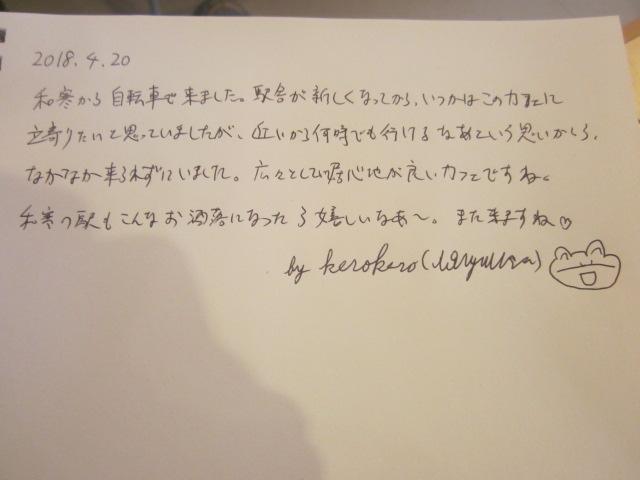 2018.4.20
和寒から自転車で来ました。駅舎が新しくなってから、いつかはこのカフェに
立寄りたいと思っていましたが、近いから何時でも行けるなあという思いから、
なかなか来られずにいました。広々として居心地が良いカフェですね。
和寒の駅もこんなお洒落になったら嬉しいなあ〜。また来ますね♡
by kerokero(